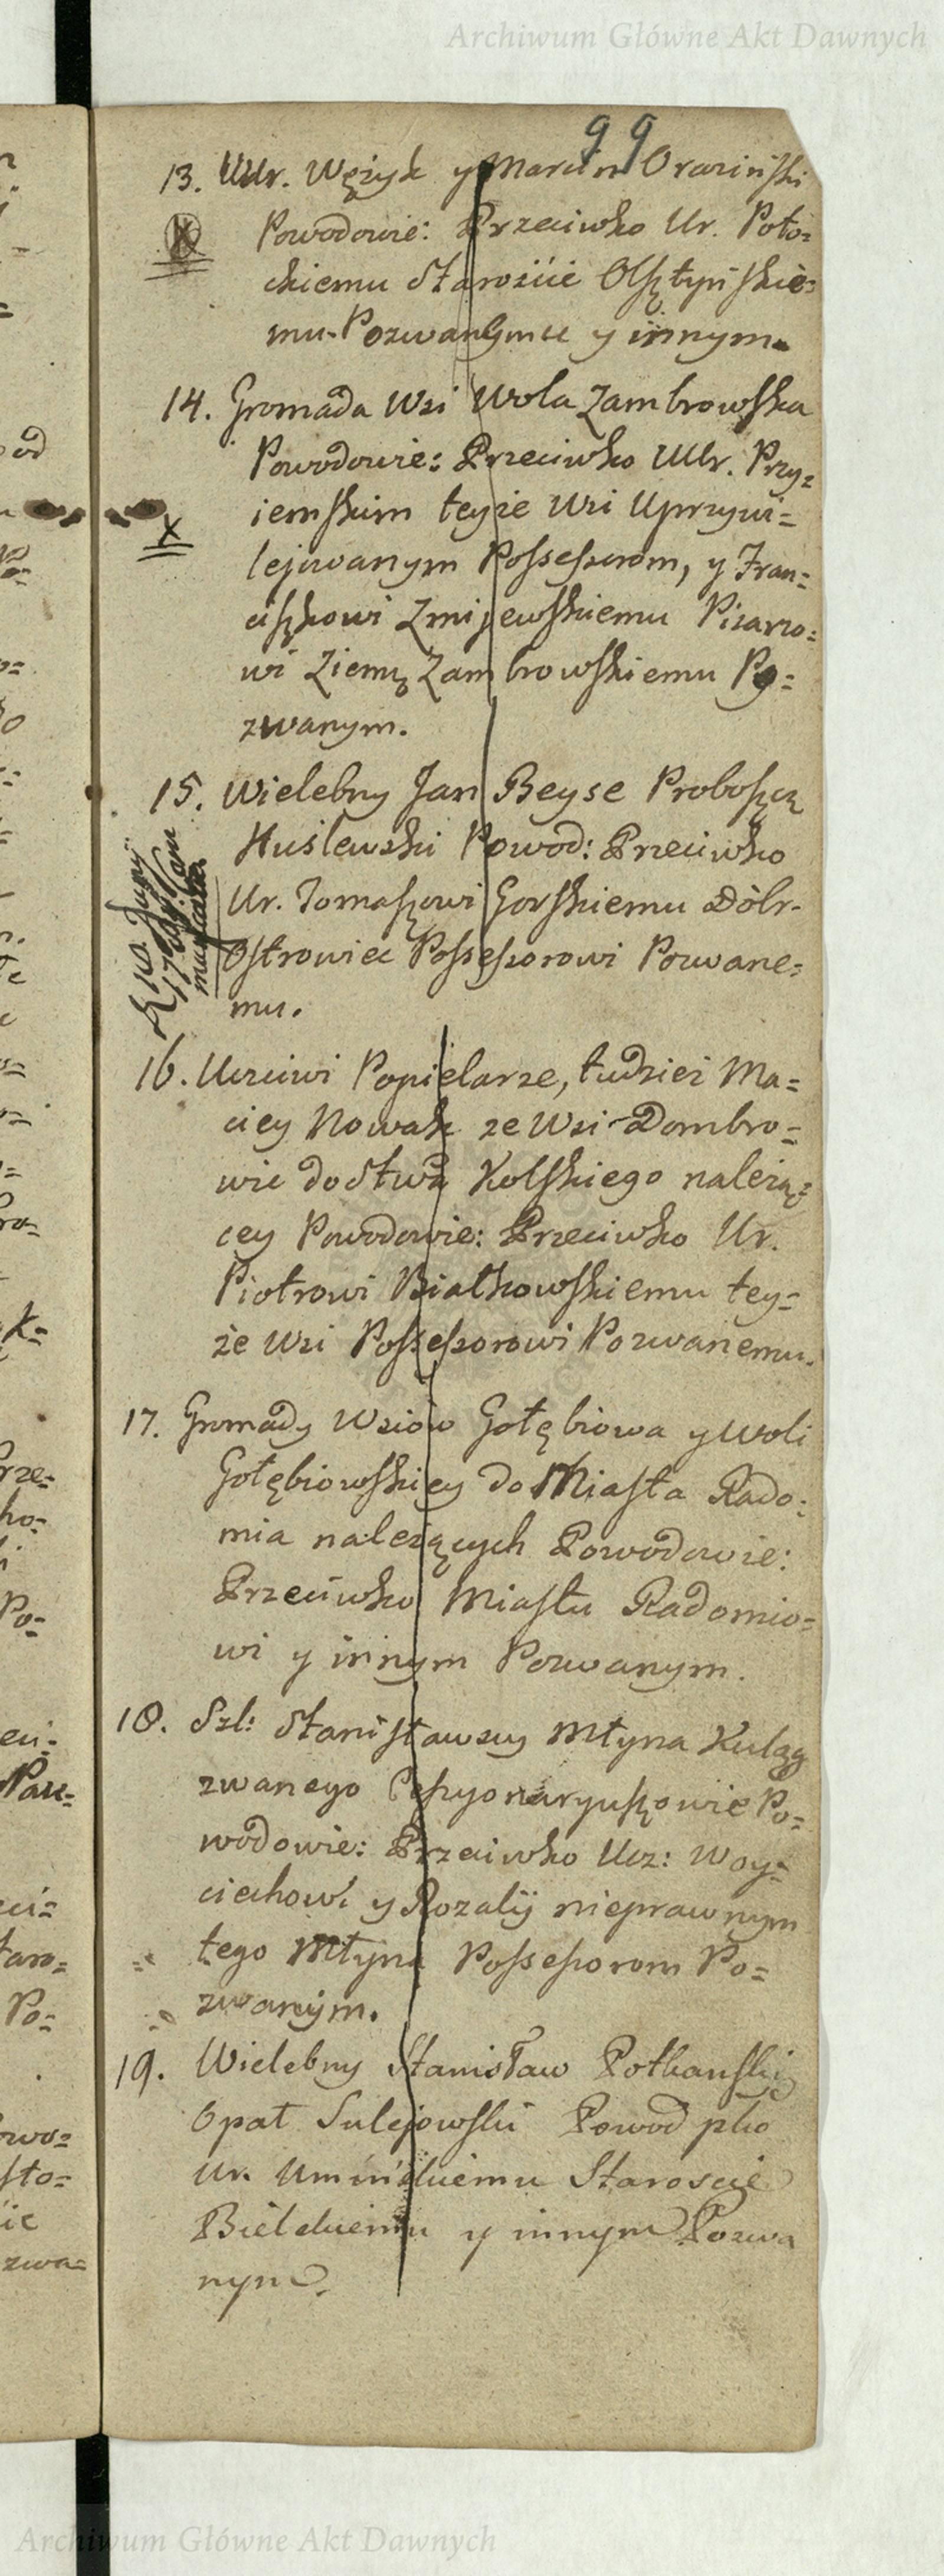 Archiwum Główne Akt Dawnych
99
13. UUr. Wężyk y Marcin Oraziński
Powodowie: Przeciwko Ur. Poto=
ckiemu Starościie Olsztyńskie=
mu Pozwanemu y innym
14. Gromada Wsi Wola Zambrowska
Powodowie: Przeciwko UUr. Przy=
iemskim teyże Wsi Uprzywi=
lejowanym Possessorom, y Fran=
ciszkowi Zmijewskiemu Pisarzo=
wi Ziemu Zambrowskiemu Po=
zwanym.
x
15. Wielebny Jan Beyse Proboszcz
Huslewski Powod: Przeciwko
Ur. Tomaszowi Gorskiemu Dóbr
Ostrowiec Possessorowi Pozwane=
mu.
16. Uczciwi Popielarze, tudzież Ma=
ciey Nowak ze Wsi Dombro=
wie do Stwa Kolskiego należą=
cey Powodowie: Przeciwko Ur.
Piotrowi Białkowskiemu tey=
że Wsi Possessorowi Pozwanemu.
17. Gromady Wsiów Gołębiowa y Woli
Gołębiowskiey do Miasta Rado=
mia należących Powodowie:
Przeciwko Miastu Radomio=
wi y innym Pozwanym.
18. Szl: Stanisławscy Młyna Kulzg
zwanego Cessyonaryuszowie Po=
wodowie: Przeciwko Ucz: Woy=
ciechowi y Rozalij nieprawnym
tego Młyna Possessorom Po=
zwanym.
19. Wielebny Stanisław Potkański
Opat Sulejowski Powod pko
Ur. Umińskiemu Staroscie
Bielskiemu y innym Pozwa
nym.
Archiwum Główne Akt Dawnych